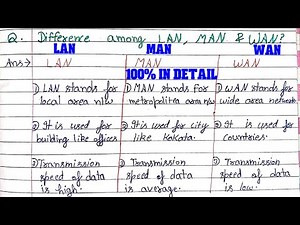 Q. Difference among LAN, MAN & WAN?
LAN MAN WAN
Ans→ LAN MAN WAN
100% IN DETAIL
1) LAN stands for
local area n/w
1) MAN stands for
metropolitan area n/w
1) WAN stands for
wide area network.
2) It is used for
building like offices
2) It is used for city
like Kolkata.
2) It is used for
countries.
3) Transmission
speed of data
is high.
3) Transmission
speed of data
is average.
3) Transmission
speed of data
is low.